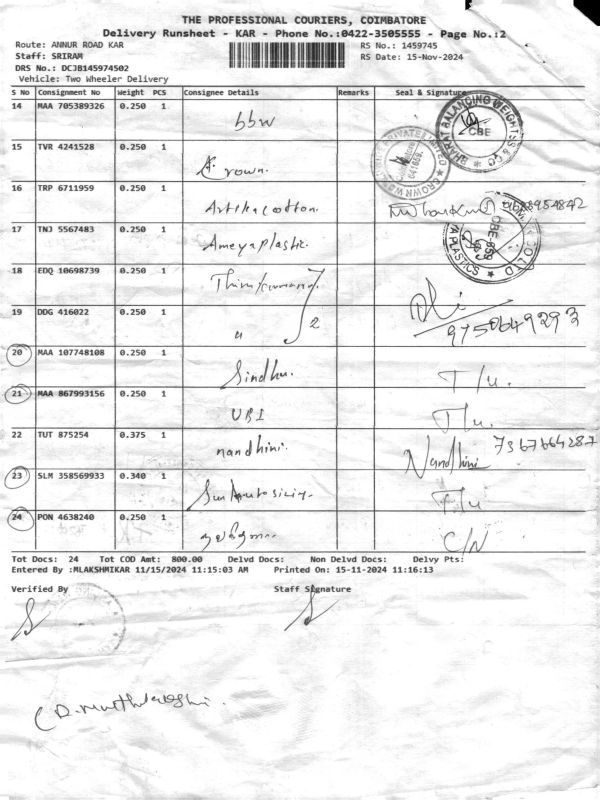 THE PROFESSIONAL COURIERS, COIMBATORE
Delivery Runsheet - KAR - Phone No.:0422-3505555 - Page No.:2
Route: ANNUR ROAD KAR
RS No.: 1459745
Staff: SRIRAM
RS Date: 15-Nov-2024
DRS No.: DCJB145974502
Vehicle: Two Wheeler Delivery
S No Consignment No Weight PCS Consignee Details Remarks Seal & Signature
14 MAA 705389326 0.250 1 bbw
BHARAT BALANCING WEIGHTS & CO
CBE
15 TVR 4241528 0.250 1 Crown.
PRIVATE LIMITED
CROWN
16 TRP 6711959 0.250 1 Artika cotton.
17 TNJ 5567483 0.250 1 Ameyaplastic.
PLASTICS
18 EDQ 10698739 0.250 1
19 DDG 416022 0.250 1 " 2
9750649293
20 MAA 107748108 0.250 1 Sindhu. T/u.
21 MAA 867993156 0.250 1 UBI T/u.
22 TUT 875254 0.375 1 nandhini. Nandhini 7367664287
23 SLM 358569933 0.340 1 T/u
24 PON 4638240 0.250 1 C/N
Tot Docs: 24 Tot COD Amt: 800.00 Delvd Docs: Non Delvd Docs: Delvy Pts:
Entered By :MLAKSHMIKAR 11/15/2024 11:15:03 AM Printed On: 15-11-2024 11:16:13
Verified By Staff Signature